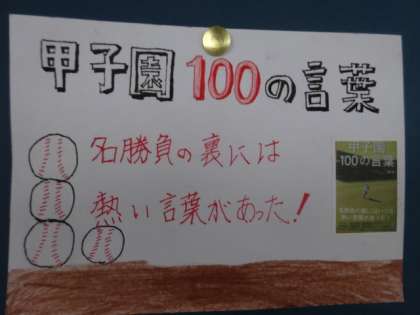 甲子園100の言葉
名勝負の裏には
熱い言葉があった!
甲子園
100の言葉